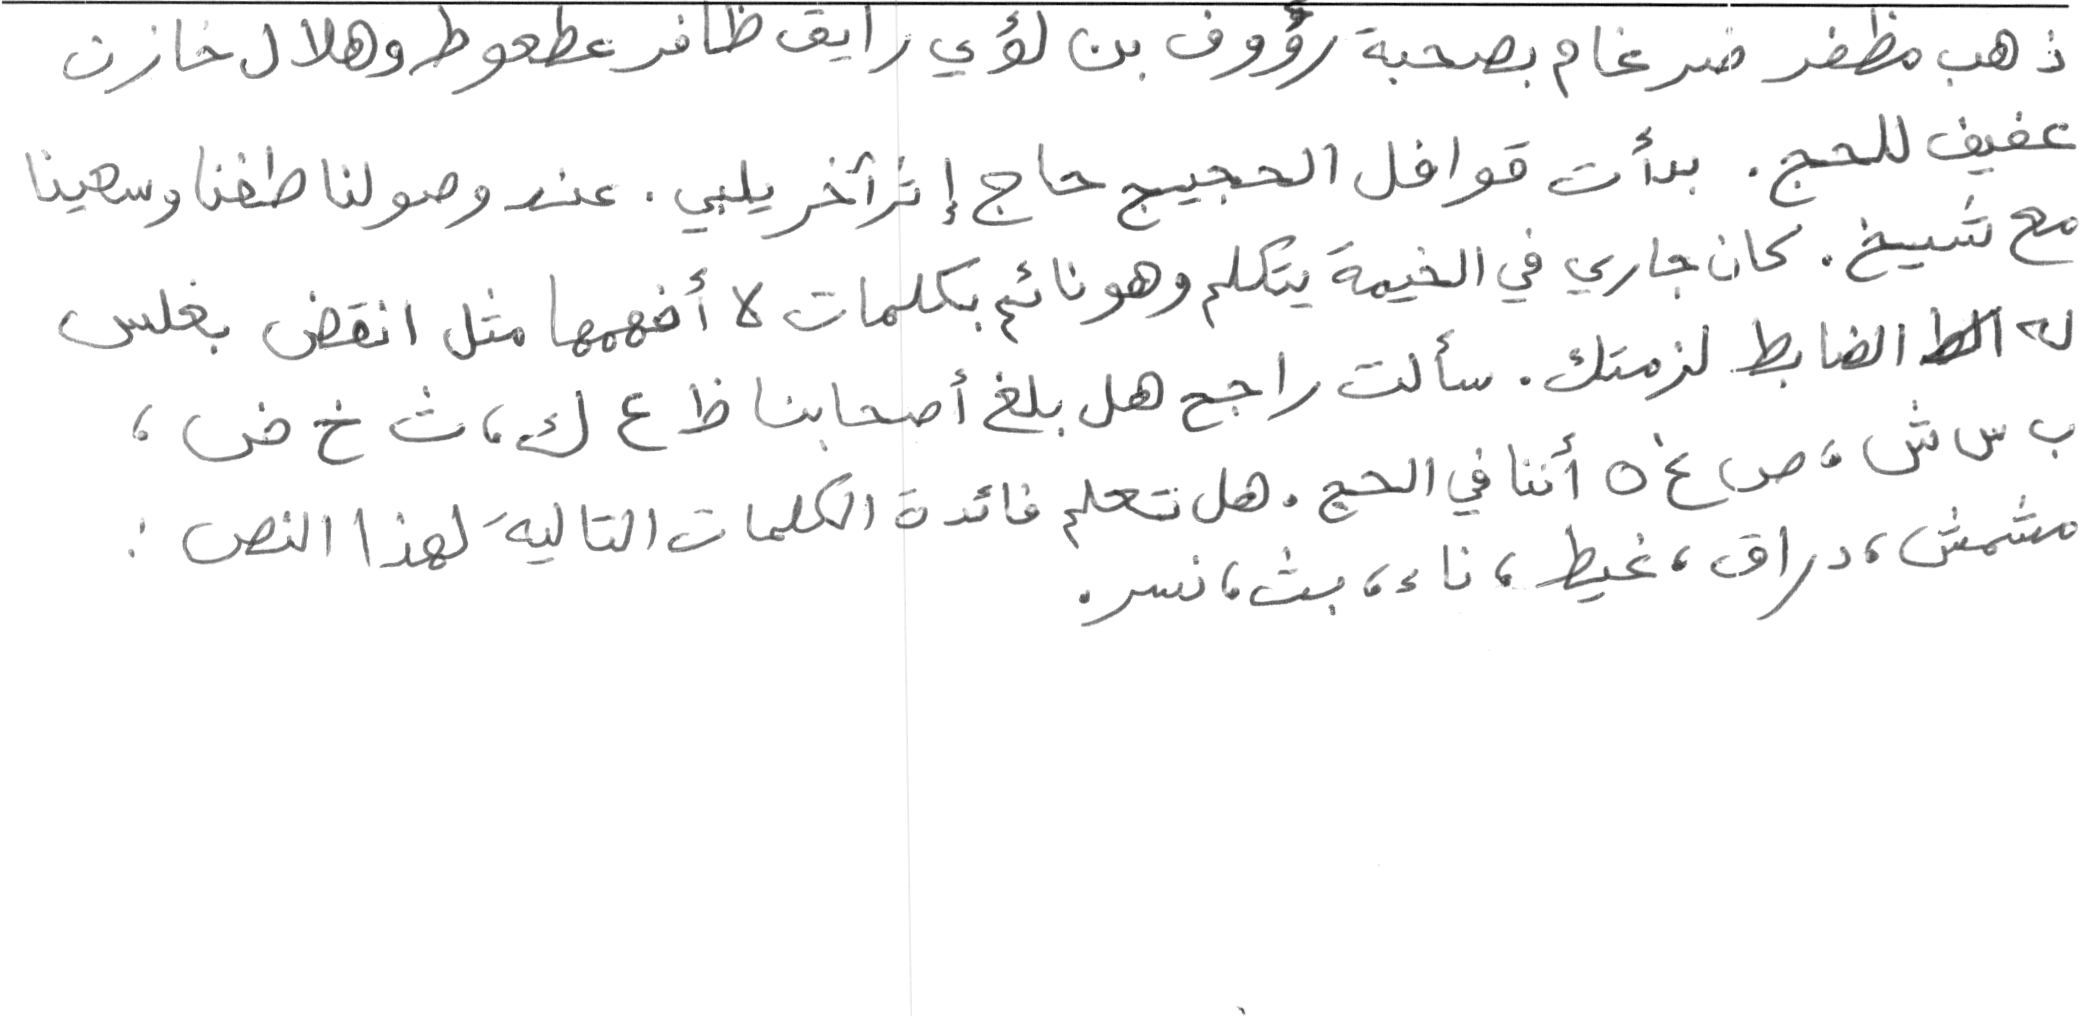 ذهب مظفر ضرغام بصحبة رؤوف بن لؤي رايق ظافر عطعوط وهلال خازن
عفيف للحج . بدأت قوافل الحجيج حاج إثر آخر يلبي . عند وصولنا طفنا وسعينا
مع شيخ . كان جاري في الخيمة يتكلم وهو نائم بكلمات لا أفهمها مثل انقض بغلس
له الضابط لزمتك . سألت راجح هل بلغ أصحابنا ظ ع ك ، ث خ ض ،
ب س ش ، ص غ ه أننا في الحج . هل تعلم فائدة الكلمات التالية لهذا النص :
مشمش ، دراق ، غيط ، ناء ، بث ، نسر .